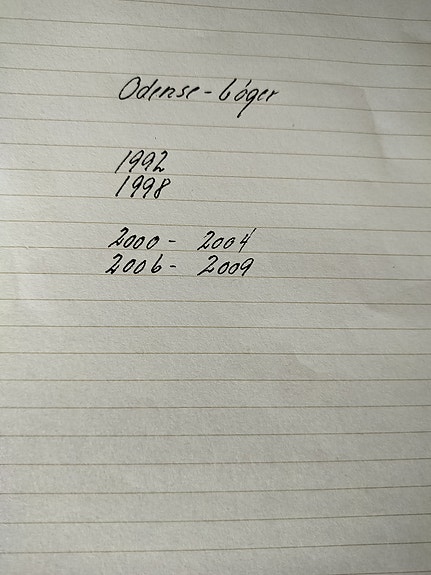 Odense-bóger
1992
1998
2000 - 2004
2006 - 2009